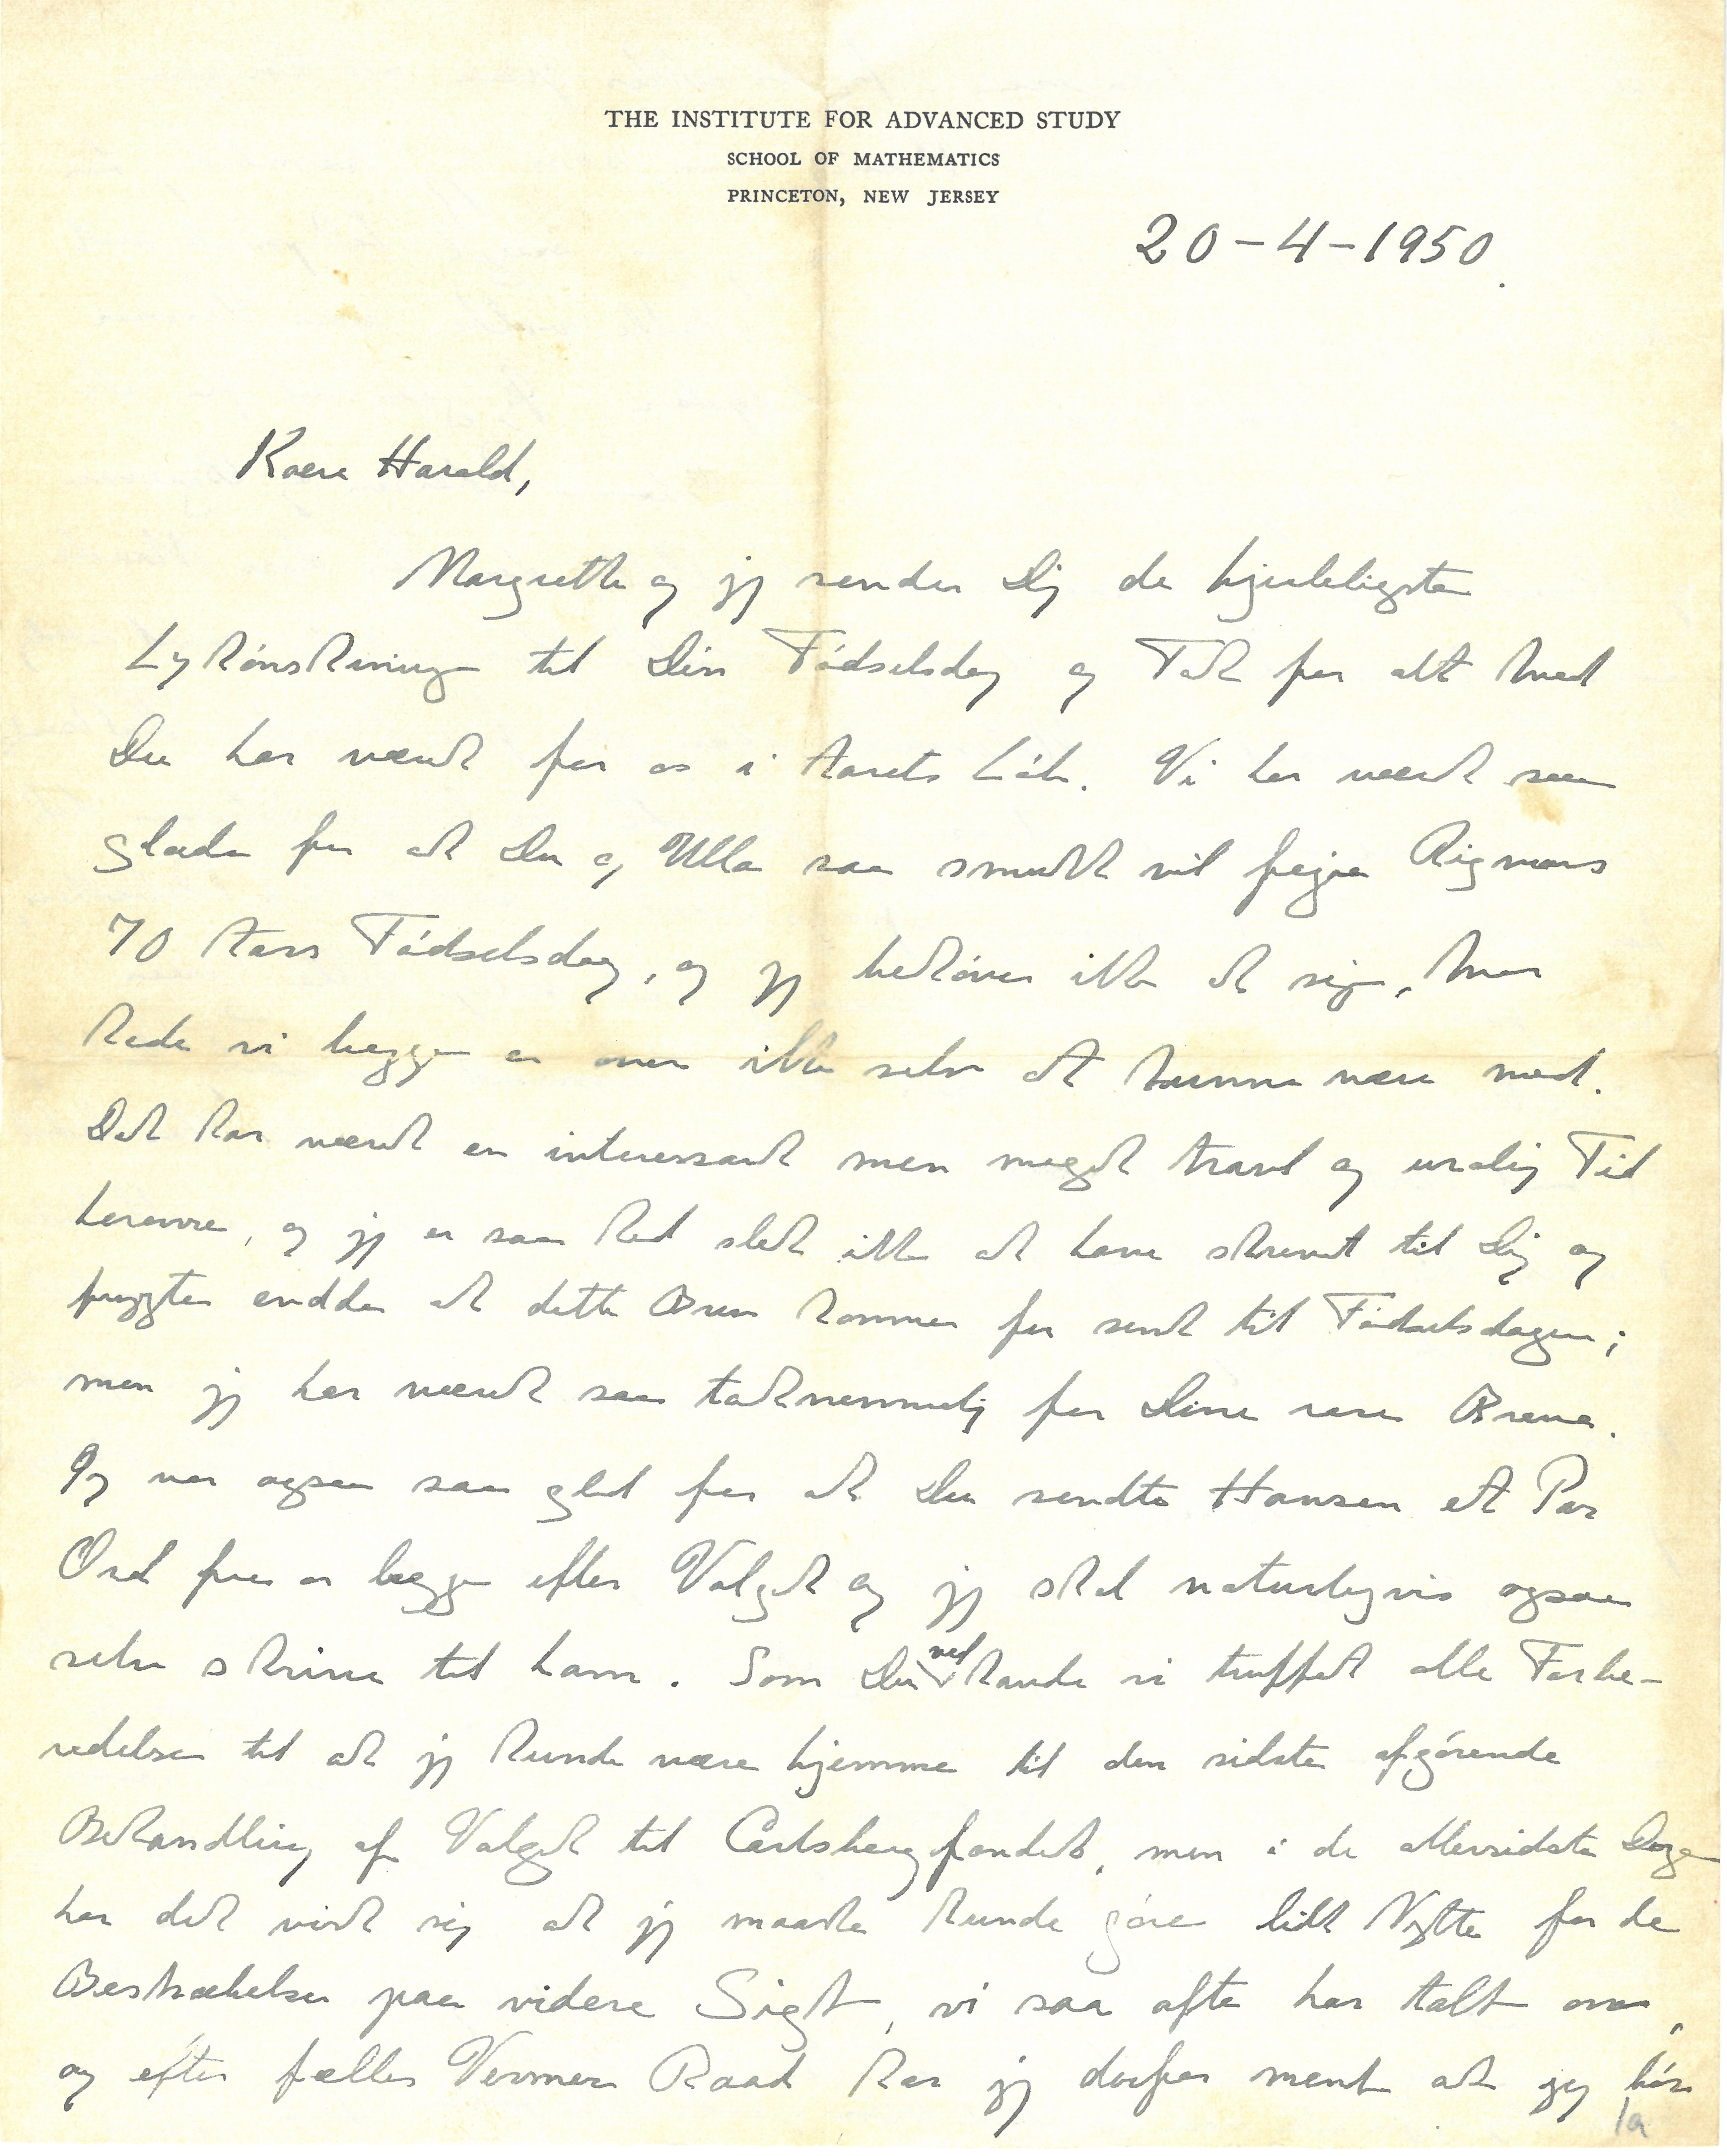 THE INSTITUTE FOR ADVANCED STUDY
SCHOOL OF MATHEMATICS
PRINCETON, NEW JERSEY
20-4-1950.
Kære Harald,
Margrethe og jeg sender Dig de hjerteligste
Lykønskninger til Din Fødselsdag og Tak for alt hvad
Du har været for os i Aarets Løb. Vi har været saa
glade for at Du og Ulla saa smukt vil fejre Rigmors
70 Aars Fødselsdag, og jeg behøver ikke at sige, hvor
kede vi begge er over ikke selv at kunne være med.
Det har været en interessant men meget travl og urolig Tid
herovre, og jeg er saa ked slet ikke at have skrevet til Dig og
frygter endda at dette Brev kommer for sent til Fødselsdagen;
men jeg har været saa taknemmelig for Dine rare Breve.
Jeg var ogsaa saa glad for at Du sendte Hansen et Par
Ord fra os begge efter Valget og jeg skal naturligvis ogsaa
selv skrive til ham. Som Du ved havde vi truffet alle Forbe-
redelser til at jeg kunde være hjemme til den sidste afgørende
Behandling af Valget til Carlsbergfondet, men i de allersidste Dage
har det vist sig at jeg maaske kunde gøre lidt Nytte for de
Bestræbelser paa videre Sigt, vi saa ofte har talt om,
og efter fælles Venners Raad har jeg derfor ment at jeg bør
1a